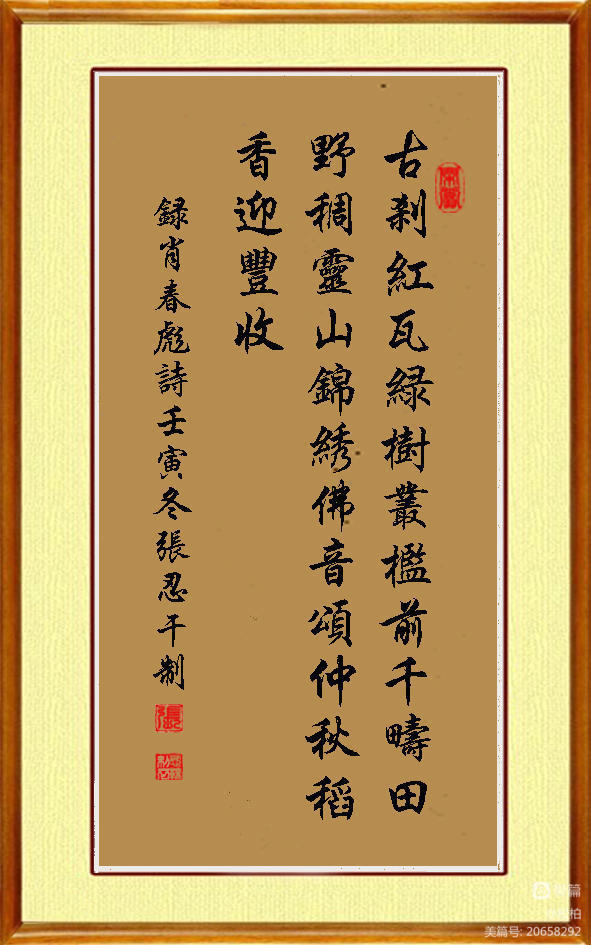 古刹紅瓦緑樹叢檻前千疇田
野稠靈山錦綉佛音頌仲秋稻
香迎豐收
録肖春彪詩壬寅冬張忍干制
張
美篇
柏
美篇号: 20658292